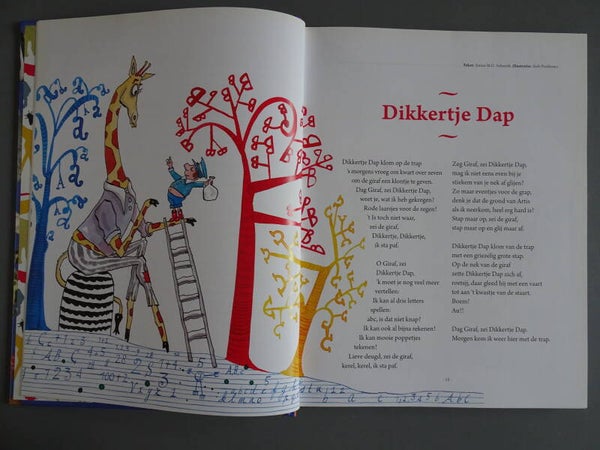 Tekst: Annie M.G. Schmidt, Illustratie:
Dikkertje Dap
Dikkertje Dap klom op de trap
's morgens vroeg om kwart over zeven
om de giraf een klontje te geven.
Dag Giraf, zei Dikkertje Dap,
weet je, wat ik heb gekregen?
Rode laarsjes voor de regen!
't Is toch niet waar,
zei de giraf,
Dikkertje, Dikkertje,
ik sta paf.
O Giraf, zei
Dikkertje Dap,
'k moet je nog veel meer
vertellen:
Ik kan al drie letters
spellen:
abc, is dat niet knap?
Ik kan ook al bijna rekenen!
Ik kan mooie poppetjes
tekenen!
Lieve deugd, zei de giraf,
kerel, kerel, ik sta paf.
Zeg Giraf, zei Dikkertje Dap,
mag ik niet eens even bij je
stiekem van je nek af glijen?
Zo maar eventjes voor de grap,
denk je dat de grond van Artis
als ik neerkom, heel erg hard is?
Stap maar op, zei de giraf,
stap maar op en glij maar af.
Dikkertje Dap klom van de trap
met een griezelig grote stap.
Op de nek van de giraf
zette Dikkertje Dap zich af,
roetsj, daar gleed hij met een vaart
tot aan 't kwastje van de staart.
Boem!
Au!!
Dag Giraf, zei Dikkertje Dap.
Morgen kom ik weer hier met de trap.